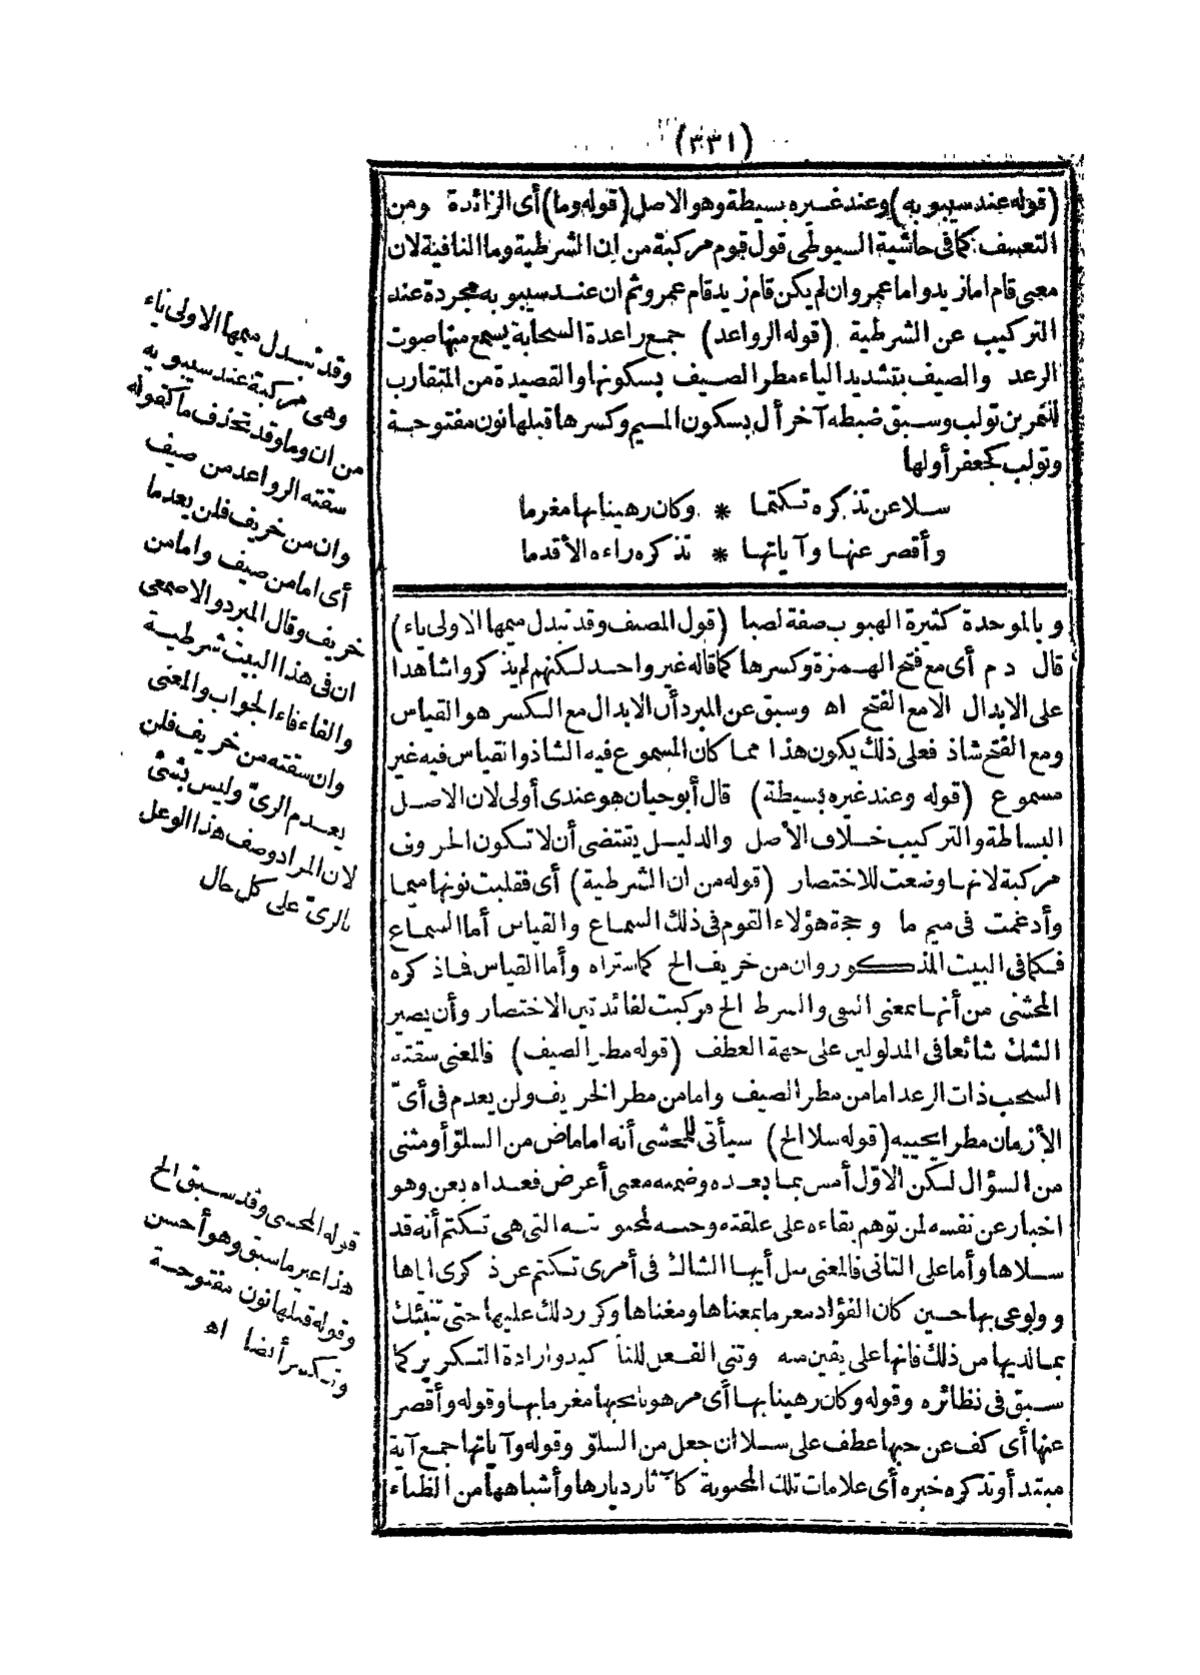 (٣٣١)
(قوله عند سيبويه) وعند غيره بسيطة وهو الاصل (قوله وما) أى الزائدة ومن
التعسف كما فى حاشية السيوطى قول قوم مركبة من ان الشرطية وما النافية لان
معنى قام اما زيد واما عمرو ان لم يكن قام زيد قام عمرو ثم ان عند سيبويه مجردة عند
التركيب عن الشرطية (قوله الرواعد) جمع راعدة السحابة يسمع منها صوت
الرعد والصيف بتشديد الياء مطر الصيف بسكونها والقصيدة من المتقارب
للنمر بن تولب وسبق ضبطه آخر أل بسكون الميم وكسرها قبلها نون مفتوحة
وتولب كجعفر أولها
سلا عن تذكره تكتما * وكان رهينا بها مغرما
وأقصر عنها وآياتها * تذكره راءه الأقدما
وبالموحدة كثيرة الهبوب صفة لصبا (قول المصنف وقد تبدل ميمها الاولى ياء)
قال دم أى مع فتح الهمزة وكسرها كما قاله غير واحد لكنهم لم يذكروا شاهدا
على الابدال الا مع الفتح اه وسبق عن المبرد أن الابدال مع الكسر هو القياس
ومع الفتح شاذ فعلى ذلك يكون هذا مما كان المسموع فيه الشاذ والقياس فيه غير
مسموع (قوله وعند غيره بسيطة) قال أبو حيان هو عندى أولى لان الاصل
البساطة والتركيب خلاف الأصل والدليل يقتضى أن لا تكون الحروف
مركبة لانها وضعت للاختصار (قوله من ان الشرطية) أى فقلبت نونها ميما
وأدغمت فى ميم ما وحجة هؤلاء القوم فى ذلك السماع والقياس أما السماع
فكما فى البيت المذكور وان من خريف الخ كما ستراه وأما القياس فماذكره
المحشى من أنها بمعنى النفى والشرط الخ مركبت لفائدتين الاختصار وأن يصير
الشك شائعا فى المدلولين على جهة العطف (قوله مطر الصيف) فالمعنى سقته
السحب ذات الرعد اما من مطر الصيف واما من مطر الخريف ولن يعدم فى أىّ
الأزمان مطرا يحييه (قوله سلا الخ) سيأتى للمحشى أنه اما ماض من السلوّ أو مثنى
من السؤال لكن الاوّل أمس بما بعده وضمنه معنى أعرض فعداه بعن وهو
اخبار عن نفسه لمن توهم بقاءه على علقته وحبه لمحبوبته التى هى تكتم أنه قد
سلاها وأما على الثانى فالمعنى سل أيها الشاك فى أمرى تكتم عن ذكرى اياها
وولوعى بها حين كان الفؤاد مغرما بمعناها ومغناها وكرر ذلك عليها حتى تنبئك
بما لديها من ذلك فانها على يقين منه وثنى الفعل للتأكيد وارادة التكرير كما
سبق فى نظائره وقوله وكان رهينا بها أى مرهونا بحبها مغرما بها وقوله وأقصر
عنها أى كف عن حبها عطف على سلا ان جعل من السلوّ وقوله وآياتها جمع آية
مبتدأ وتذكره خبره أى علامات تلك المحبوبة كآثار ديارها وأشباهها من الظباء
وقد تبدل ميمها الاولى ياء
وهى مركبة عند سيبويه
من ان وما وقد تحذف ما كقوله
سقته الرواعد من صيف
وان من خريف فلن يعدما
أى اما من صيف واما من
خريف وقال المبرد والاصمعى
ان فى هذا البيت شرطية
والفاء فاء الجواب والمعنى
وان سقته من خريف فلن
يعدم الرىّ وليس بشئ
لان المراد وصف هذا الوعل
بالرىّ على كل حال
قوله المحشى وقد سبق الخ
هذا غير ما سبق وهو أحسن
وقوله قبلها نون مفتوحة
وتكسر أيضا اه